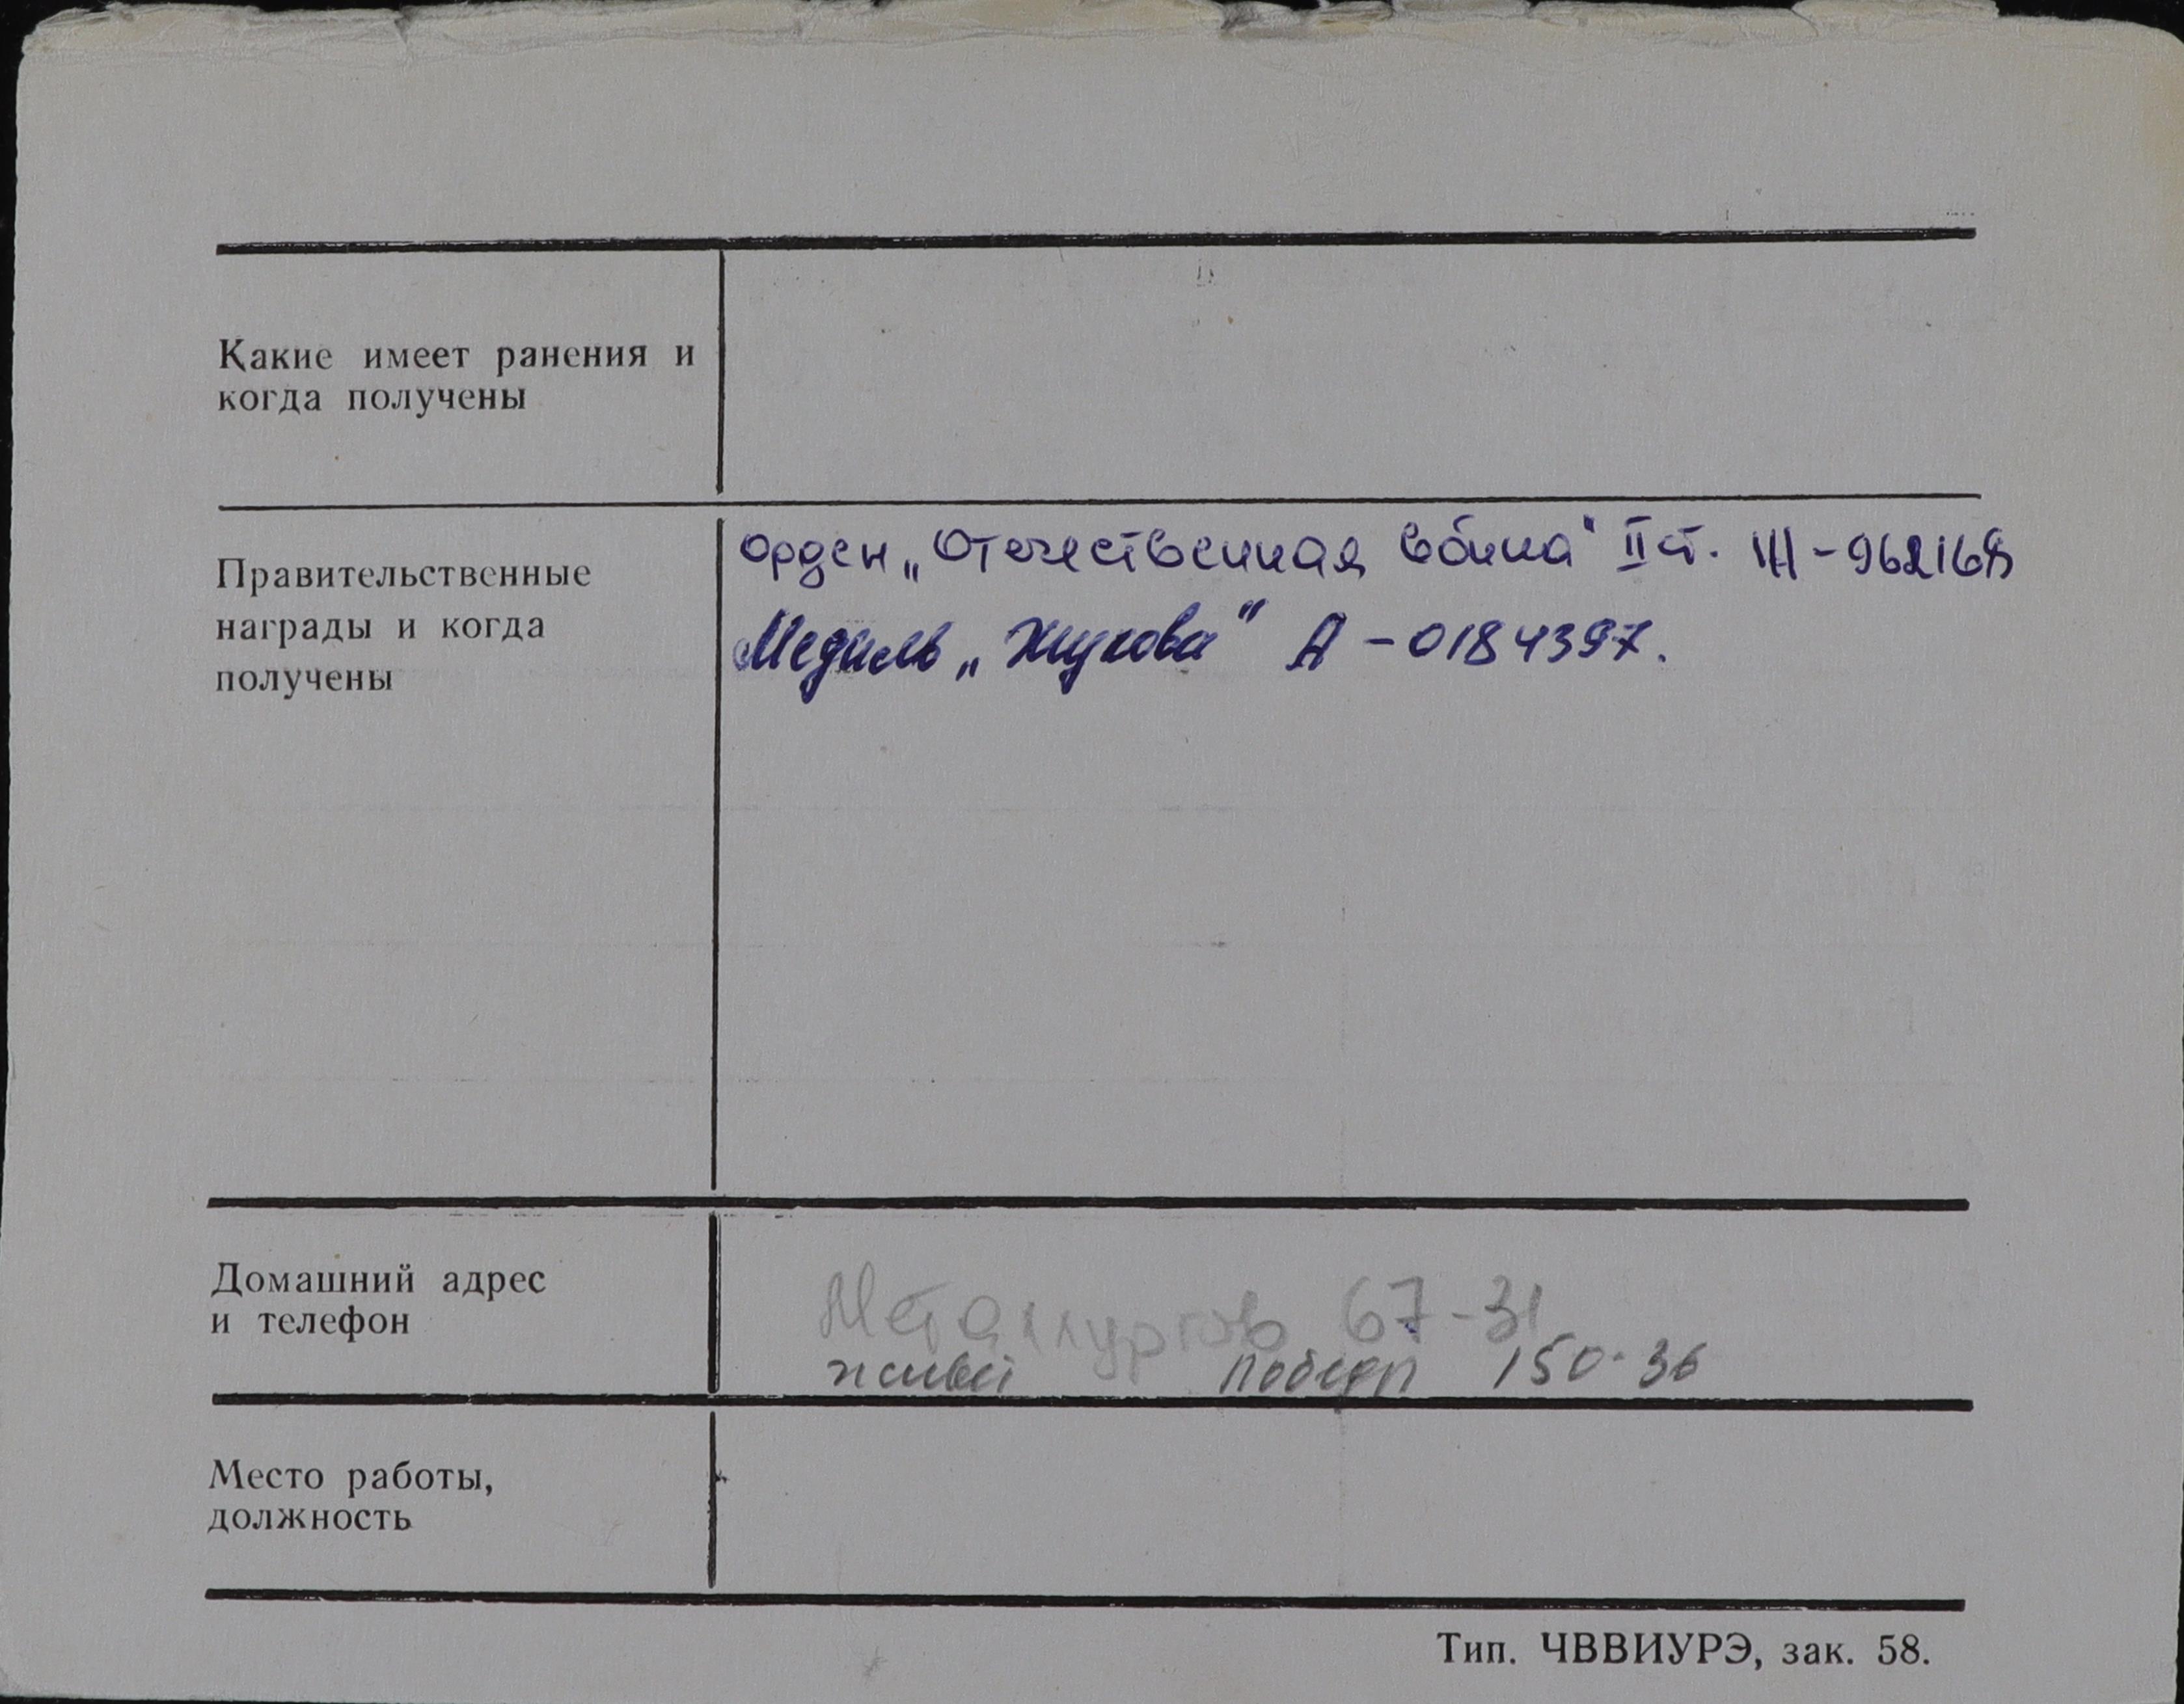 Какие имеет ранения и
когда получены
Правительственные
награды и когда
получены
орден „Отечественная война" II ст. III-962168
Медаль „Жукова" А-0184397.
Домашний адрес
и телефон
Металлургов 67-31
живет Победы 150-36
Место работы,
должность
Тип. ЧВВИУРЭ, зак. 58.